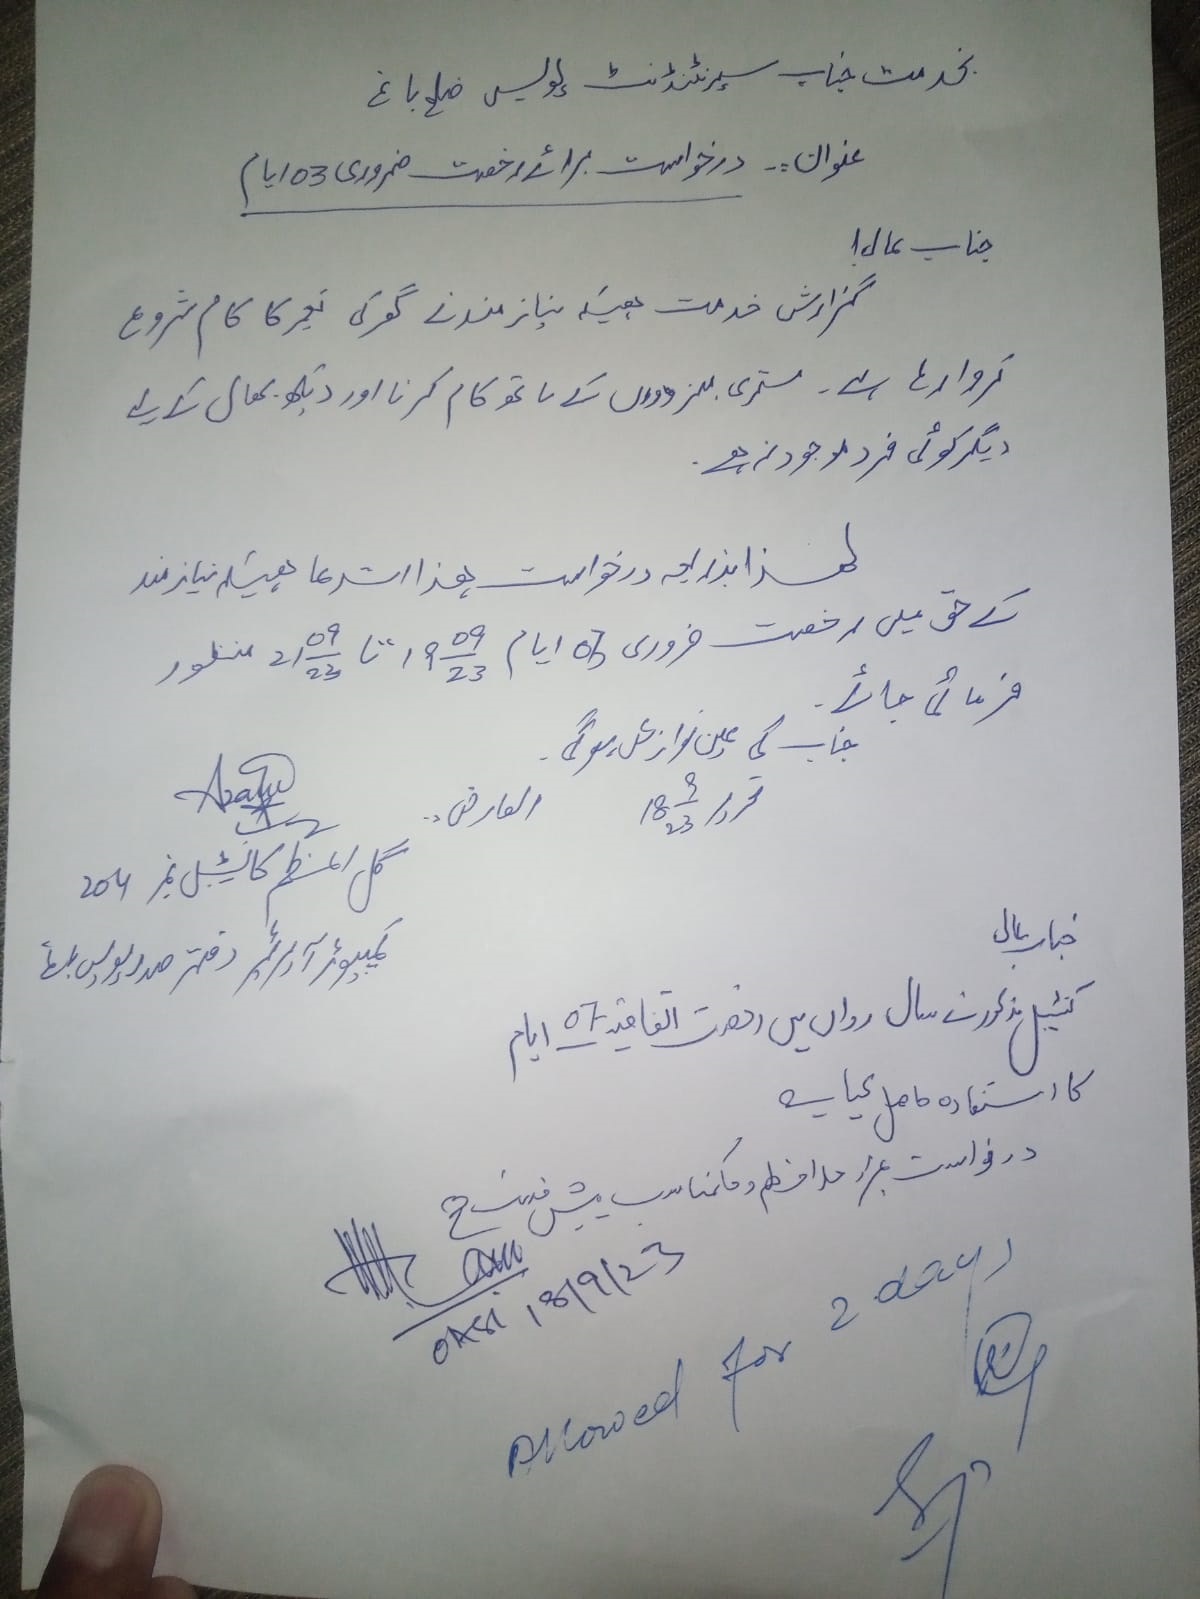 بخدمت جناب سپرنٹنڈنٹ پولیس ضلع باغ
عنوان:۔ درخواست برائے رخصت ضروری 03 ایام
جناب عالی!
گزارش خدمت ہیکہ نیازمند نے گھر کی تعمیر کا کام شروع
کروا رہا ہے۔ مستری مزدوروں کے ساتھ کام کرنا اور دیکھ بھال کے لیے
دیگر کوئی فرد موجود نہ ہے۔
لھذا بذریعہ درخواست ھذا استدعا ہیکہ نیازمند
کے حق میں رخصت ضروری 03 ایام 19 09/23 تا 21 09/23 منظور
فرمائی جائے۔
جناب کی عین نوازش ہوگی۔
18 9/23
العارض:۔
گل المنظر کانسٹیبل نمبر 204
کمپیوٹر آپریٹر دفتر صدر پولیس باغ
جناب عالی
کنسٹیبل مذکور نے سال رواں میں رخصت اتفاقیہ 07 ایام
کا استفادہ حاصل کیا ہے
درخواست بمراد ملاحظہ و حکم مناسب پیش خدمت ہے
OASI 18/9/23
Allowed for 2 days